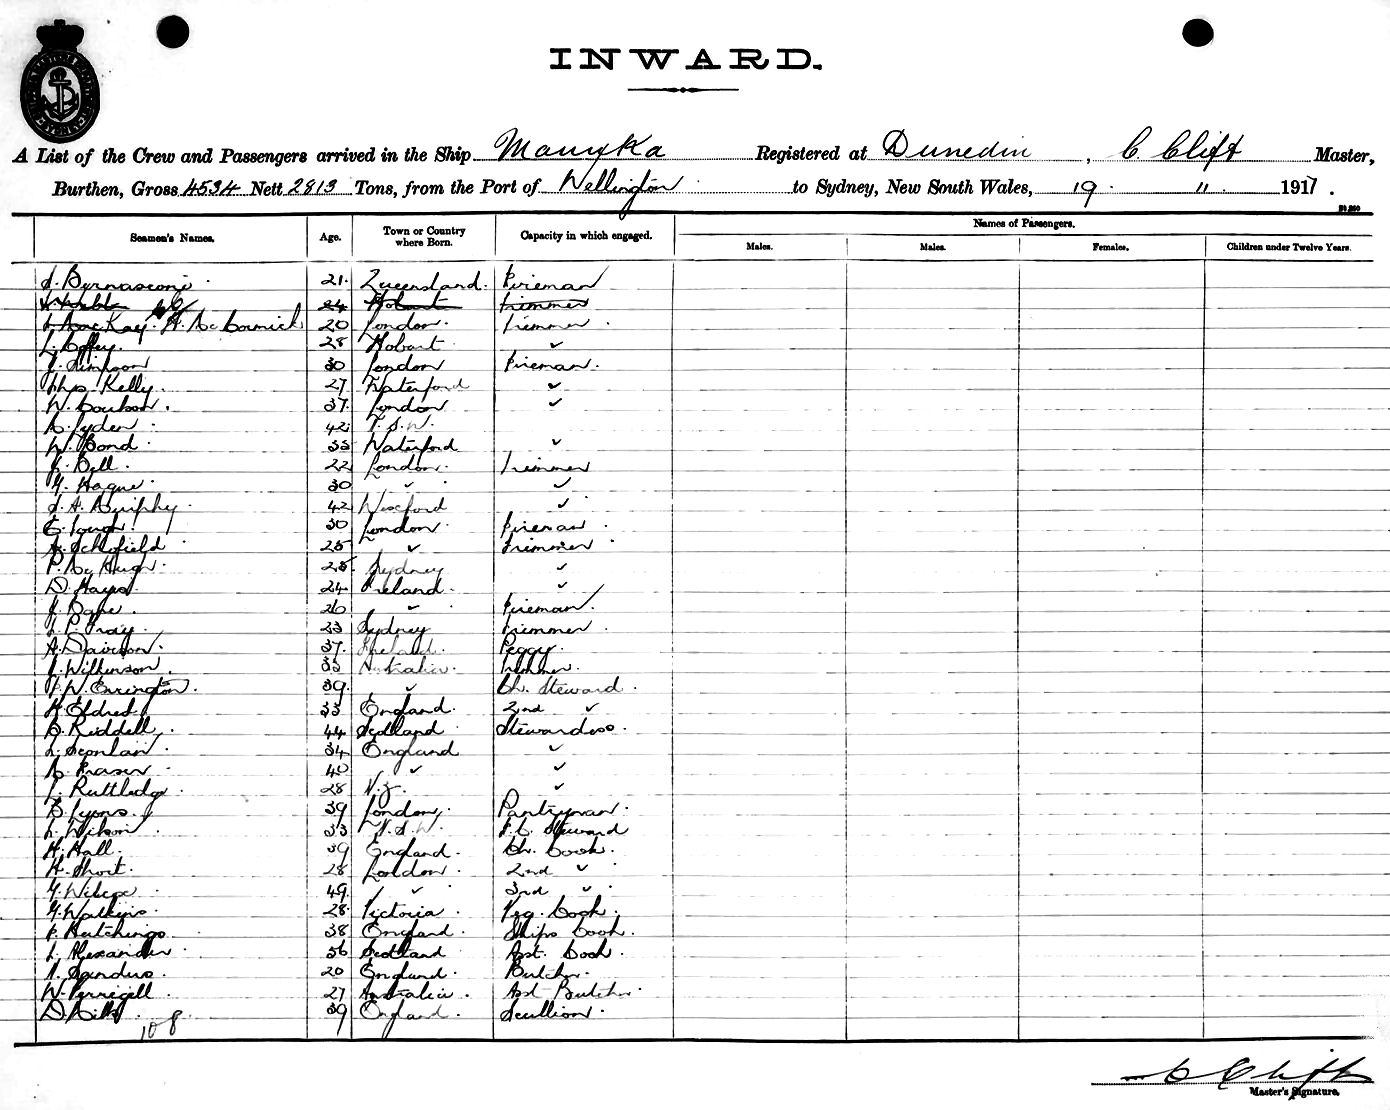 INWARD.
A List of the Crew and Passengers arrived in the Ship Manuka Registered at Dunedin, C. Clift Master,
Burthen, Gross 4534 Nett 2813 Tons, from the Port of Wellington to Sydney, New South Wales, 19 . 11 . 1917.
Names of Passengers.
Seamen's Names. Age. Town or Country where Born. Capacity in which engaged. Males. Males. Females. Children under Twelve Years.
Bernasconi 21 Queensland. Fireman
24 Hobart Trimmer
MacKay. H. McCormick 20 London. Trimmer
Coffey. 28 Hobart ✓
Simpson 30 London Fireman.
Thos Kelly. 27 Waterford ✓
W. Coulson. 37 London ✓
42 N.S.W.
W. Bond 33 Waterford ✓
Bell. 22 London. Trimmer
Hague 30 ✓ ✓
J. A. Murphy. 42 Wexford ✓
30 London. Fireman
Schofield 25 ✓ Trimmer
P. McHugh. 25 Sydney ✓
D. Hayes 24 Ireland. ✓
26 ✓ Fireman.
23 Sydney Trimmer.
A. Davison. 37. Ireland. Peggy.
J. Wilkinson 33 Australia. Trimmer.
W. Errington. 39. ✓ Ch. Steward.
H. Eldred 33 England. 2nd ✓
Riddell. 44 Scotland Stewardess.
Scanlan 34 England ✓
Fraser 40 ✓ ✓
Ruttledge 28 N.Z. ✓
B. Lyons. 39 London. Pantryman
Wilson. 33 N.S.W. F.C. Steward
H. Hall. 39 England. Ch. Cook.
H. Short. 28 London. 2nd ✓
G. Wilcox 49. ✓ 3rd ✓
G. Watkins. 28. Victoria. Veg. Cook.
Hutchings 38 England. Ships Cook.
Alexander 56 Scotland Asst. Cook.
Sanders 20 England. Butcher.
W. 27 Australia. Asst Butcher.
D. Mills 39 England. Scullion.
108
C Clift
Master's Signature.